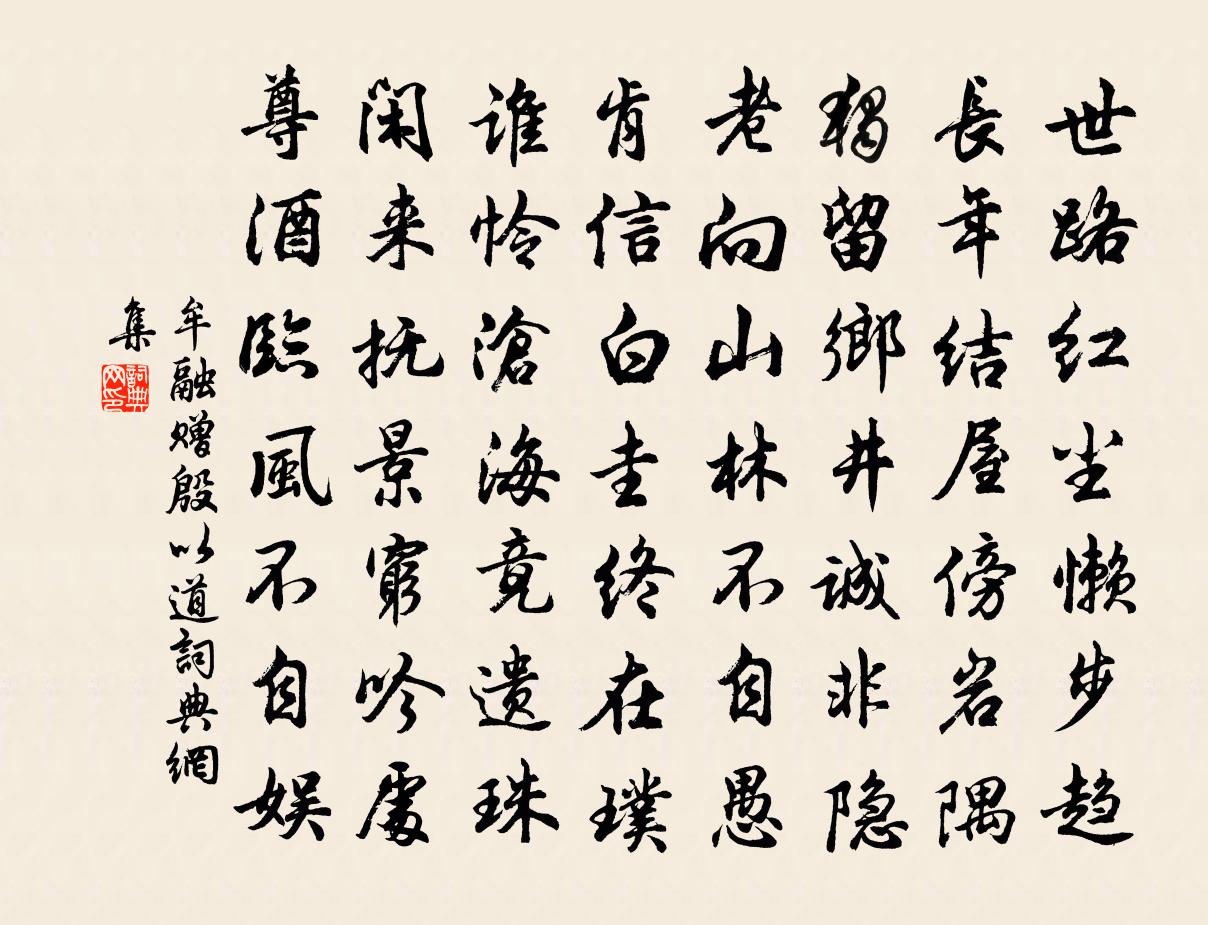 世路红尘懒步趋
長年结屋傍岩隅
獨留鄉井诚非隐
老向山林不自愚
肯信白圭终在璞
谁怜滄海竟遗珠
闲来抚景窮吟處
尊酒臨風不自娱
牟融赠殷以道詞典網
集
詞典
网印